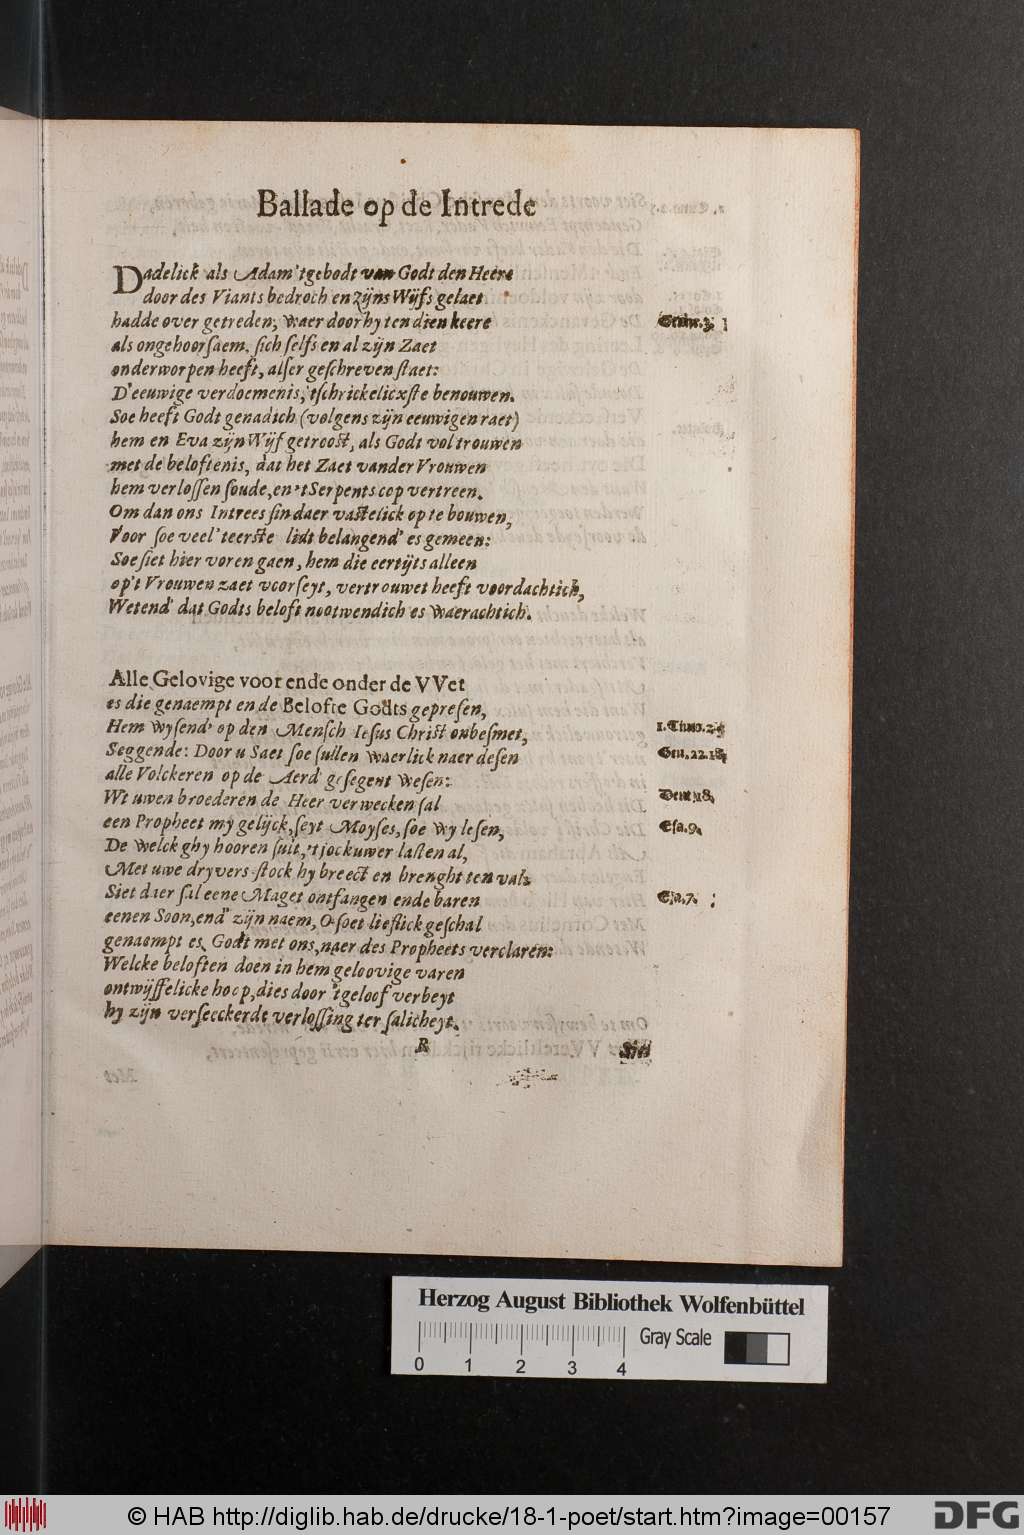 Ballade op de Intrede
Dadelick als Adam 'tgebodt van Godt den Heere
door des Viants bedroch en zijns Wijfs gelaet
hadde over getreden, waer door hy ten dien keere
als ongehoorsaem, sich selfs en al zijn Zaet
onderworpen heeft, alser geschreven staet:
D'eeuwige verdoemenis, 'tschrickelicxste benouwen.
Soe heeft Godt genadich (volgens zijn eeuwigen raet)
hem en Eva zijn Wijf getroost, als Godt vol trouwen
met de beloftenis, dat het Zaet vander Vrouwen
hem verlossen soude, en 't Serpents cop vertreen.
Om dan ons Intrees sin daer vastelick op te bouwen,
Voor soe veel 'teerste lidt belangend' es gemeen:
Soe siet hier voren gaen, hem die eertijts alleen
op't Vrouwen zaet voorseyt, vertrouwet heeft voordachtich,
Wetend' dat Godts beloft nootwendich es waerachtich.
Alle Gelovige voor ende onder de VVet
es die genaempt en de Belofte Godts gepresen,
Hem wysend' op den Mensch Iesus Christ onbesmet,
1. Timo. 2.5
Seggende: Door u Saet soe sullen waerlick naer desen
Gen. 22.18
alle Volckeren op de Aerd' gesegent wesen:
Wt uwen broederen de Heer verwecken sal
Deut. 18.
een Propheet my gelijck, seyt Moyses, soe wy lesen,
Esa. 9.
De welck ghy hooren sult, 't jock uwer lasten al,
Met uwe dryvers-stock hy breect en brenght ten val.
Siet daer sal eene Maget ontfangen ende baren
Esa. 7.
eenen Soon, end' zijn naem, O soet lieflick geschal
genaempt es, Godt met ons, naer des Propheets verclaren:
Welcke beloften doen in hem geloovige varen
ontwijffelicke hoop, dies door 'tgeloof verbeyt
hy zijn verseeckerde verlossing ter salicheyt.
R
Siet
Herzog August Bibliothek Wolfenbüttel
Gray Scale
0 1 2 3 4
© HAB http://diglib.hab.de/drucke/18-1-poet/start.htm?image=00157
DFG